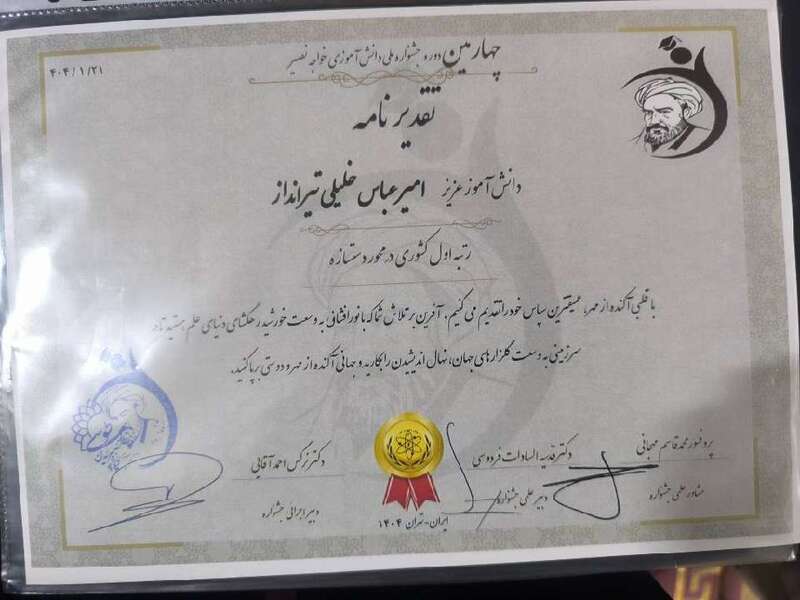 چهارمین دوره جشنواره ملی دانش آموزی خواجه نصیر
۴۰۴/۱/۲۱
تقدیر نامه
دانش آموز عزیز امیرعباس خلیلی تیرانداز
رتبه اول کشوری در محور دستسازه
با قلبی آکنده از مهر، عمیقترین سپاس خود را تقدیم می کنیم. آفرین بر تلاش شما که با نور افشانی به وسعت خورشید رهگشای دنیای علم هستید تا در
سرزمینی به وسعت گلزارهای جهان، نهال اندیشیدن را بکارید و جهانی آکنده از مهر و دوستی برپا کنید.
پروفسور محمد قاسم مهمانی
مشاور علمی جشنواره
دکتر فدیه السادات فردوسی
دبیر علمی جشنواره
دکتر نرگس احمد آقایی
دبیر اجرائی جشنواره
ایران-تهران ۱۴۰۴